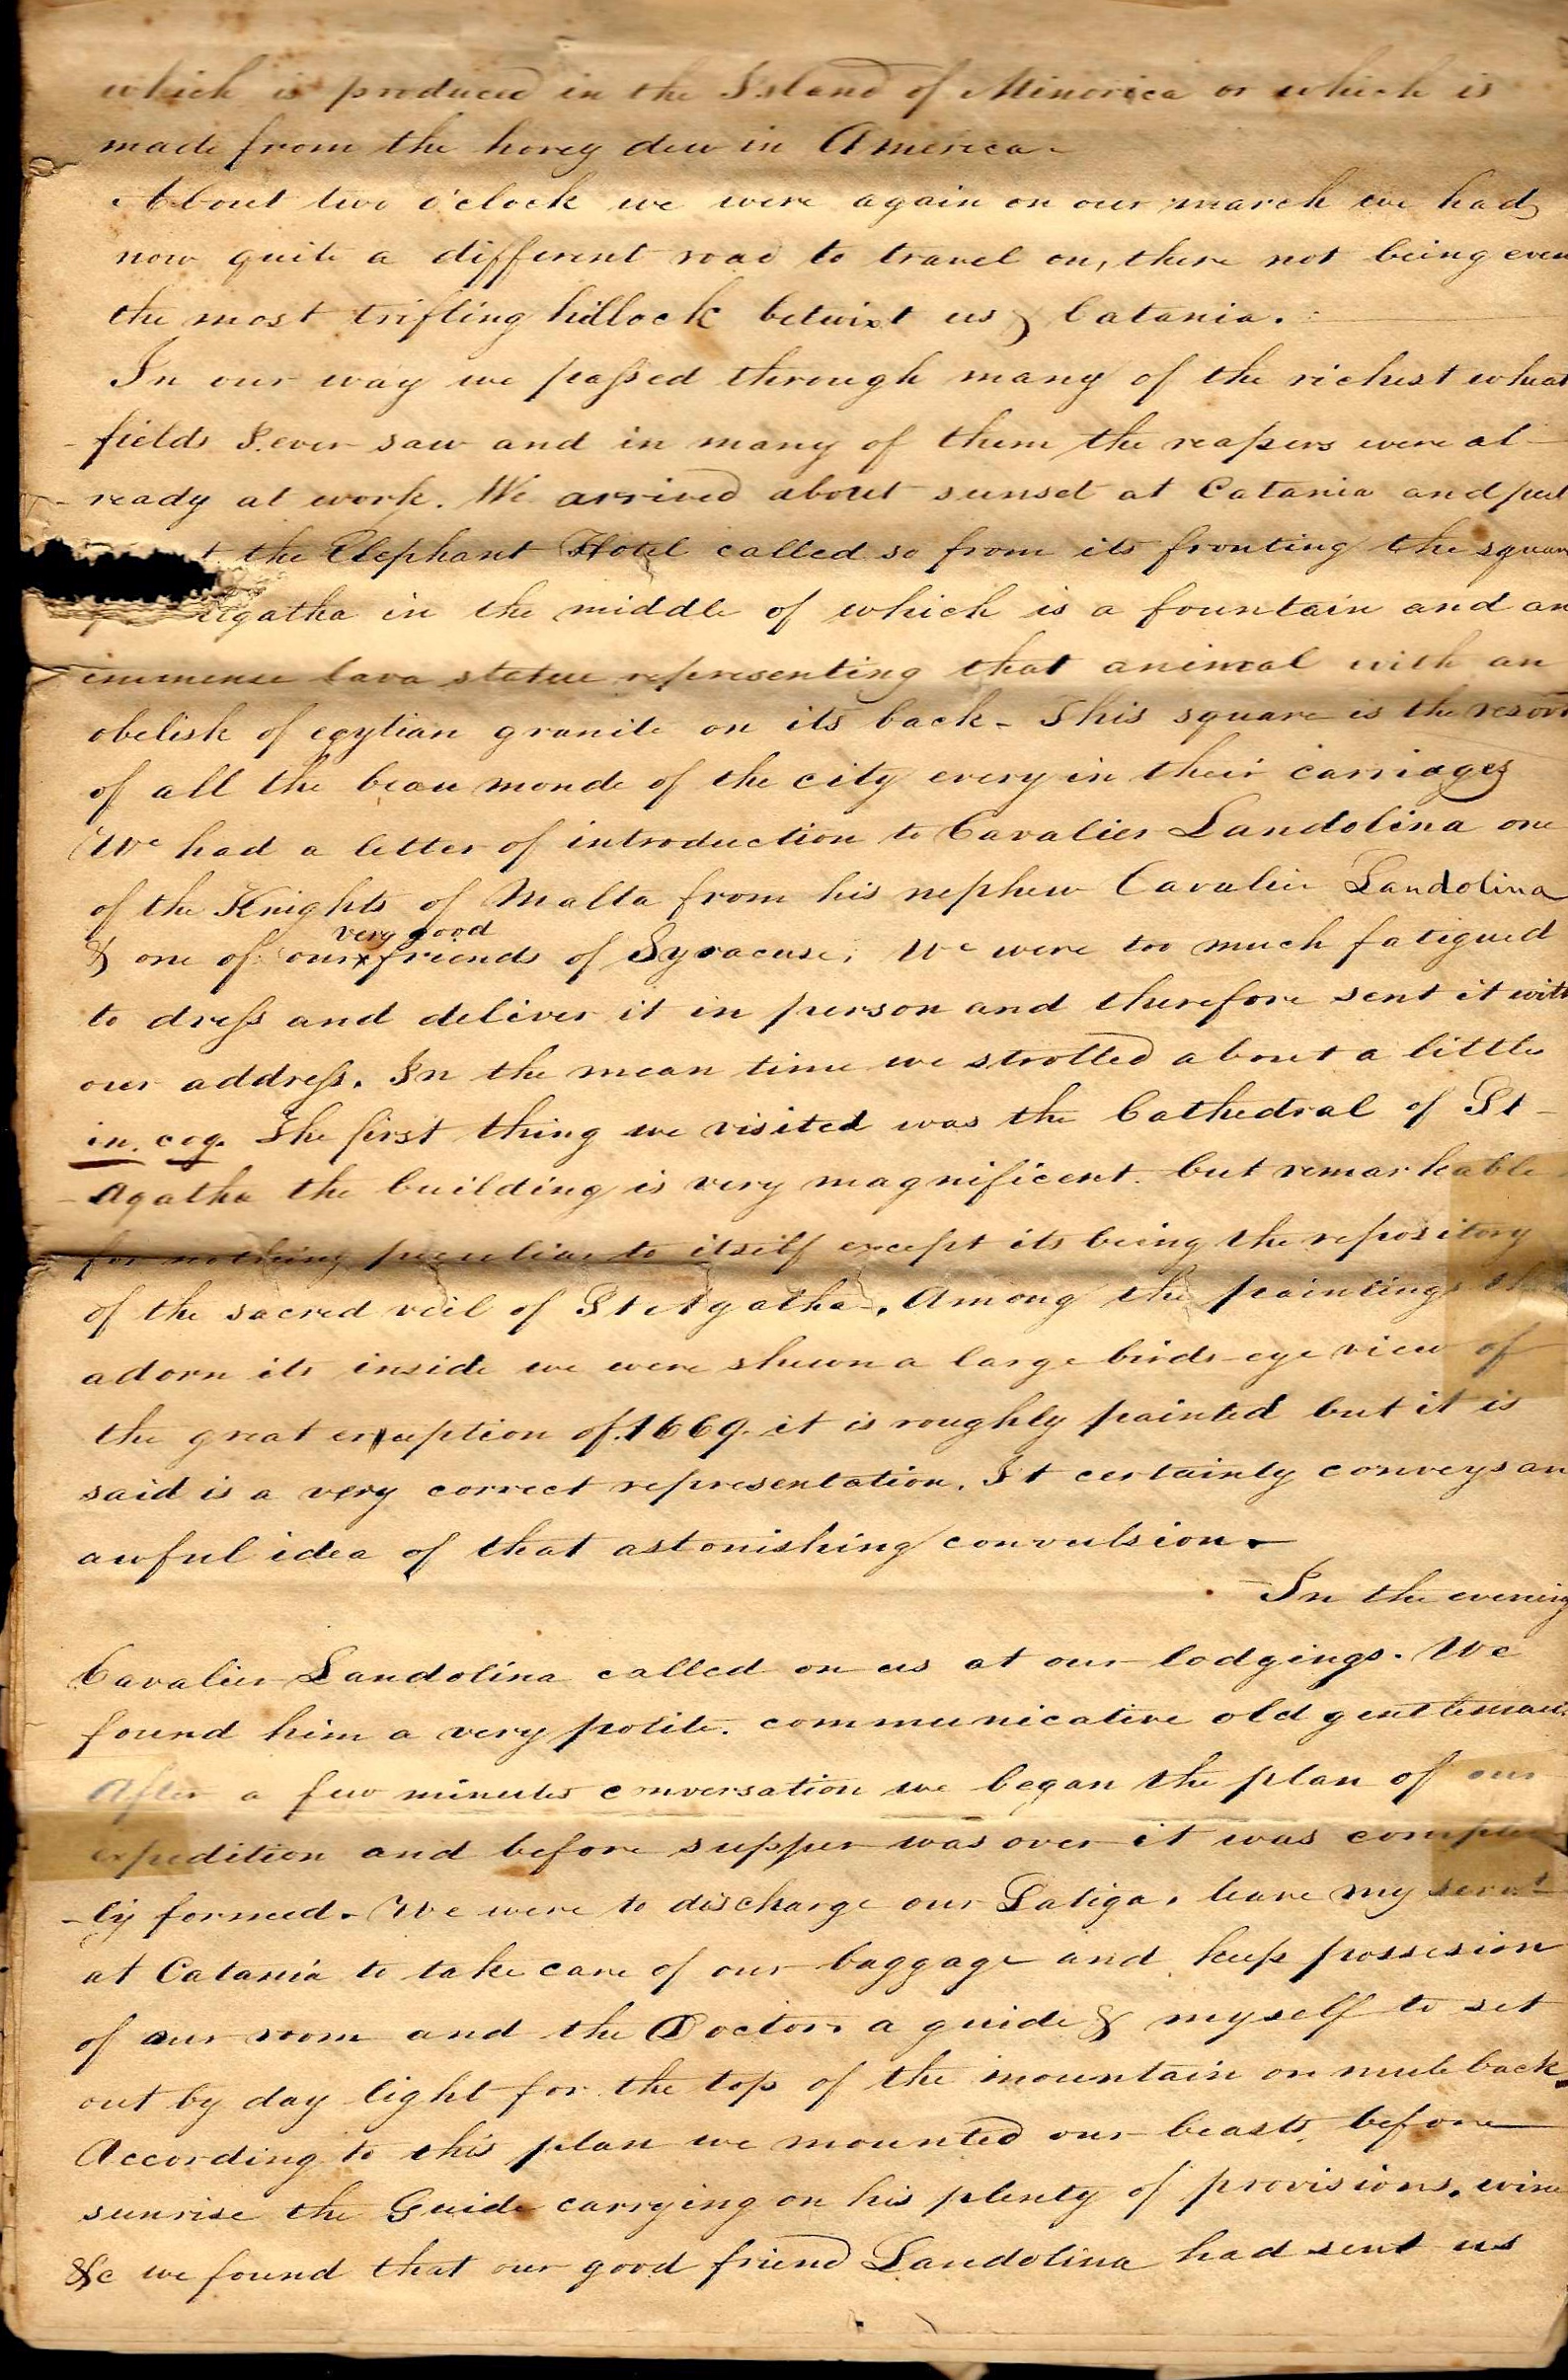 which is produced in the Island of Minorica or which is
made from the honey dew in America -
About two o'clock we were again on our march we had
now quite a different road to travel on, there not being even
the most trifling hillock betwixt us & Catania.
In our way we passed through many of the richest wheat
- fields I ever saw and in many of them the reapers were al-
- ready at work. We arrived about sunset at Catania and put
the Elephant Hotel called so from its fronting the square
Agatha in the middle of which is a fountain and an
immense lava statue representing that animal with an
obelisk of egytian granite on its back - This square is the resort
of all the beau monde of the city every in their carriages
We had a letter of introduction to Cavalier Landolina one
of the Knights of Malta from his nephew Cavalier Landolina
very good
& one of our x friends of Syracuse; We were too much fatigued
to dress and deliver it in person and therefore sent it with
our address. In the mean time we strolled about a little
in. cog. The first thing we visited was the Cathedral of St -
- Agatha the building is very magnificent. but remarkable
for nothing peculiar to itself except its being the repository
of the sacred veil of St Agatha. Among the paintings
adorn its inside we were shewn a large birds-eye view of
the great eruption of 1669. it is roughly painted but it is
said is a very correct representation. It certainly conveys an
awful idea of that astonishing convulsion -
In the evening
Cavalier Landolina called on us at our lodgings. We
found him a very polite. communicative old gentleman.
After a few minutes conversation we began the plan of our
expedition and before supper was over it was
-ly formed. We were to discharge our Latiga. leave my servt
at Catania to take care of our baggage and keep possesion
of our room and the Doctor a guide & myself to set
out by day light for the top of the mountain on mule back.
According to this plan we mounted our beasts before
sunrise the Guide carrying on his plenty of provisions, wine
&c we found that our good friend Landolina had sent us